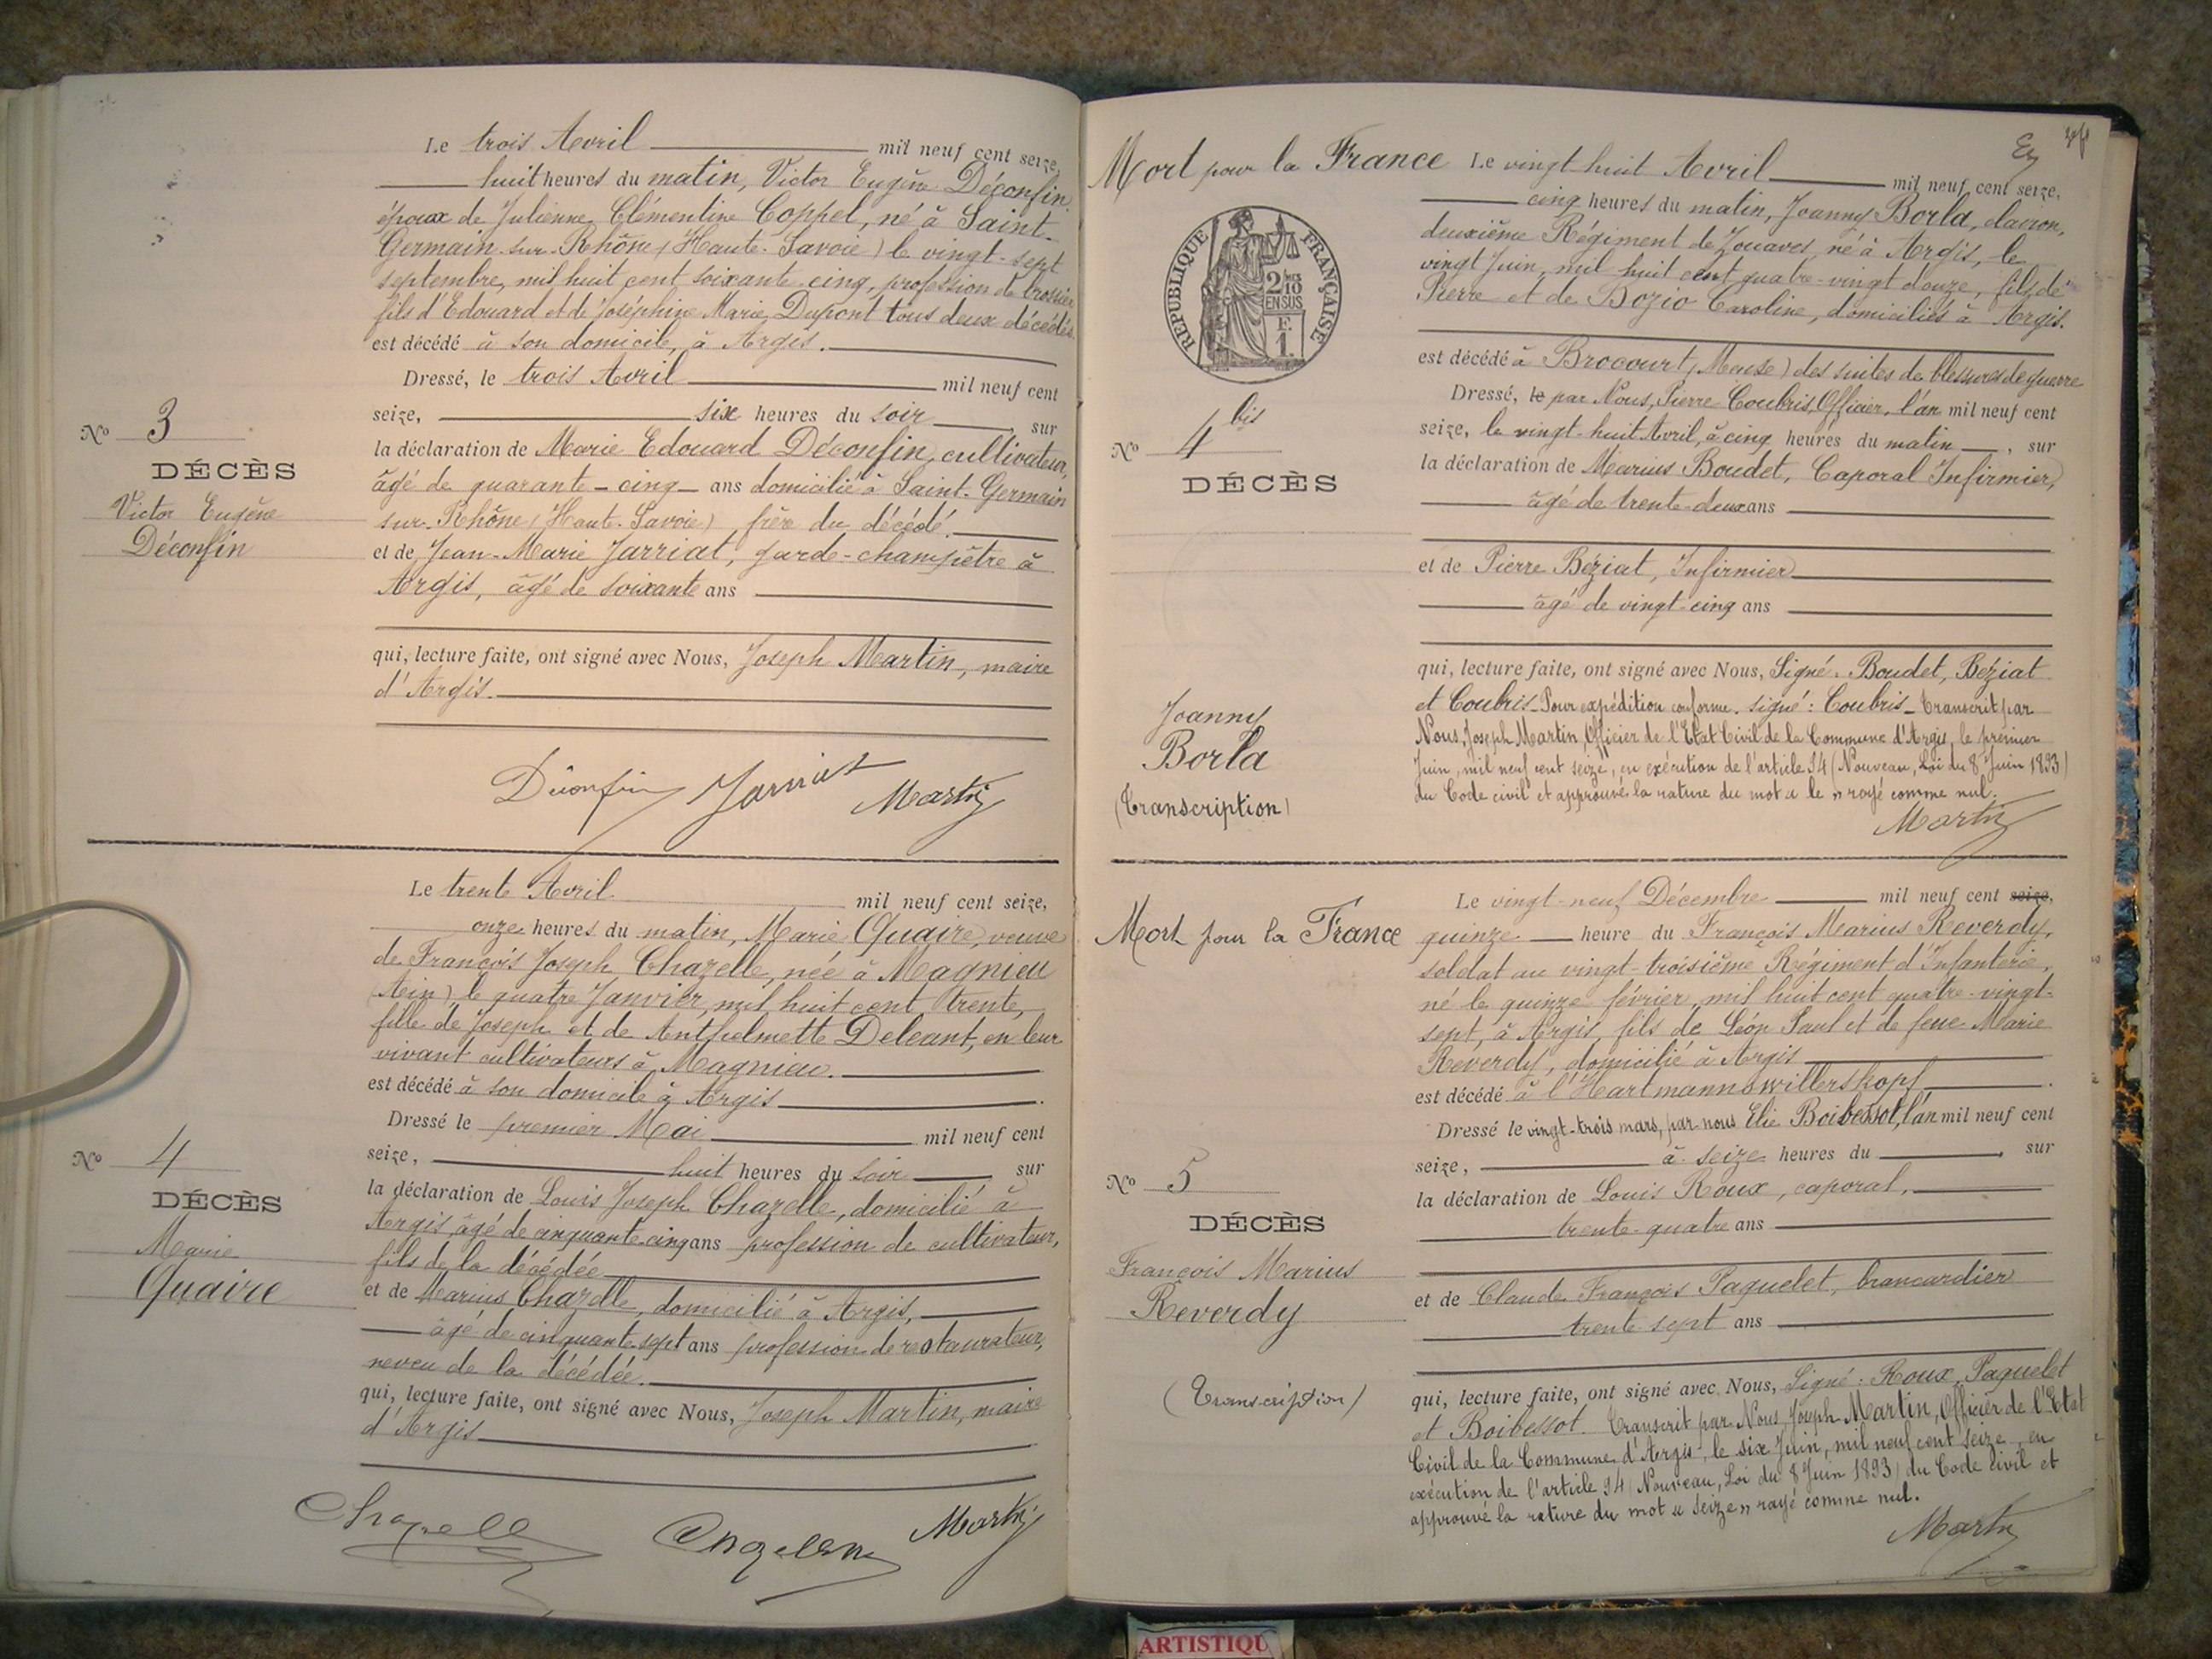 Le trois Avril mil neuf cent seize,
huit heures du matin, Victor Eugène Déconfin
époux de Julienne Clémentine Coppel, né à Saint-
Germain-sur-Rhône (Haute-Savoie) le vingt-sept
septembre, mil huit cent soixante cinq, profession de
fils d'Edouard et de Joséphine Marie Dupont tous deux décédés
est décédé à son domicile, à Argis.
Dressé, le trois Avril mil neuf cent
seize, six heures du soir, sur
la déclaration de Marie Edouard Déconfin, cultivateur,
âgé de quarante-cinq ans domicilié à Saint-Germain
sur-Rhône (Haute-Savoie), frère du décédé.
et de Jean-Marie Jarriat, garde-champêtre à
Argis, âgé de soixante ans
qui, lecture faite, ont signé avec Nous, Joseph Martin, maire
d'Argis.
N° 3
DÉCÈS
Victor Eugène
Déconfin
Déconfin Jarriat Martin
Le trente Avril mil neuf cent seize,
onze heures du matin, Marie Quaire, veuve
de François Joseph Chazelle, née à Magnieu
(Ain) le quatre Janvier, mil huit cent trente,
fille de Joseph et de Anthelmette Deleant, en leur
vivant cultivateurs à Magnieu.
est décédé à son domicile à Argis
Dressé le premier Mai mil neuf cent
seize, huit heures du soir, sur
la déclaration de Louis Joseph Chazelle, domicilié à
Argis, âgé de cinquante-cinq ans profession de cultivateur,
fils de la décédée
et de Marius Chazelle, domicilié à Argis,
âgé de cinquante-sept ans profession de restaurateur,
neveu de la décédée.
qui, lecture faite, ont signé avec Nous, Joseph Martin, maire
d'Argis
N° 4
DÉCÈS
Marie
Quaire
Martin
Mort pour la France
REPUBLIQUE FRANÇAISE
2/10
EN SUS
F.
1.
N° 4 bis
DÉCÈS
Joanny
Borla
(Transcription)
Le vingt-huit Avril mil neuf cent seize,
cinq heures du matin, Joanny Borla, clairon,
deuxième Régiment de Zouaves, né à Argis, le
vingt Juin, mil huit cent quatre-vingt douze, fils de
Pierre et de Bozio Caroline, domiciliés à Argis.
est décédé à Brocourt (Meuse) des suites de blessures de guerre
Dressé, le par Nous, Pierre Coubris, Officier, l'an mil neuf cent
seize, le vingt-huit Avril, à cinq heures du matin, sur
la déclaration de Marius Boudet, Caporal Infirmier,
âgé de trente-deux ans
et de Pierre Béziat, Infirmier
âgé de vingt-cinq ans
qui, lecture faite, ont signé avec Nous, Signé: Boudet, Béziat
et Coubris. Pour expédition conforme. signé: Coubris. Transcrit par
Nous, Joseph Martin, Officier de l'Etat Civil de la Commune d'Argis, le premier
Juin, mil neuf cent seize, en exécution de l'article 94 (Nouveau, Loi du 8 Juin 1893)
du Code civil et approuvé la rature du mot « le » rayé comme nul.
Martin
Mort pour la France
N° 5
DÉCÈS
François Marius
Reverdy
(Transcription)
Le vingt-neuf Décembre mil neuf cent seize,
quinze heure du François Marius Reverdy,
soldat au vingt-troisième Régiment d'Infanterie,
né le quinze février, mil huit cent quatre-vingt-
sept, à Argis, fils de Léon Paul et de feue Marie
Reverdy, domicilié à Argis
est décédé à l'Hartmannswillerskopf.
Dressé le vingt-trois mars, par nous Elie Boibessot, l'an mil neuf cent
seize, à seize heures du, sur
la déclaration de Louis Roux, caporal,
trente-quatre ans
et de Claude François Paquelet, brancardier
trente-sept ans
qui, lecture faite, ont signé avec Nous, Signé: Roux, Paquelet
et Boibessot. Transcrit par Nous, Joseph Martin, Officier de l'Etat
Civil de la Commune d'Argis, le six Juin, mil neuf cent seize, en
exécution de l'article 94 (Nouveau, Loi du 8 Juin 1893) du Code civil et
approuvé la rature du mot « seize » rayé comme nul.
Martin
ARTISTIQU